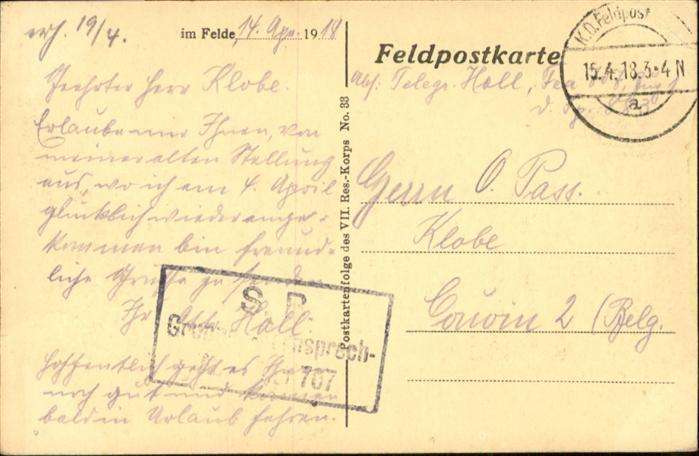 erh. 19/4.
im Felde, 14. Apr. 1918
Feldpostkarte
K.D. Feldpost
15.4.18.3-4N
a
Abs: Telegr. Koll,
Geehrter Herr Klobe.
Erlaube mir Ihnen, von
meiner alten Stellung
aus, wo ich am 4. April
glücklich wieder ange-
kommen bin freund-
liche Grüße zu senden
Ihr Koll.
Hoffentlich geht es Ihnen
noch gut und können
bald in Urlaub fahren.
S
sprech-
707
Postkartenfolge des VII. Res.-Korps No. 33
Herrn O. Pass.
Klobe
Couvin 2 (Belg.